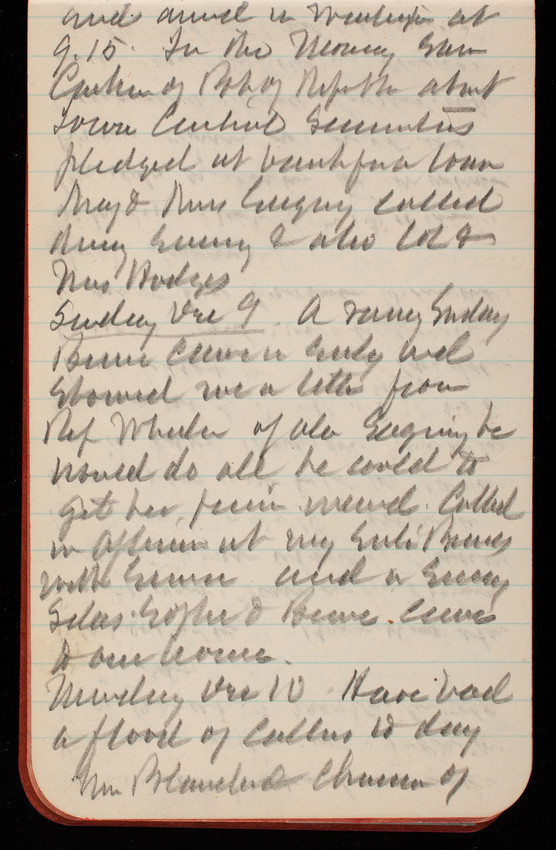 and arrived in Washington at
9.15. In the Morning saw
of about
Iowa Central Securities
pledged at bank for a loan
Maj & Mrs Gregory called
during Evening & also Col &
Mrs Hodges
Sunday Dec 9 A rainy Sunday
came in early and
showed me a letter from
Rep Wheeler of Ala saying he
would do all he could to
get her called
in afternoon at my
with and in Evening
Silas came
to our
Monday Dec 10 Have had
a flood of callers to day
Mr Blanchard Chairman of